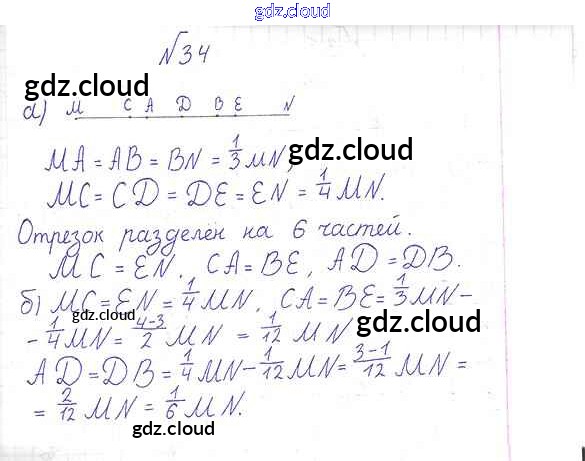 gdz.cloud
№34
gdz.cloud
а) M C A D B E N
gdz.cloud
MA = AB = BN = 1/3 MN,
MC = CD = DE = EN = 1/4 MN.
Отрезок разделён на 6 частей.
MC = EN, CA = BE, AD = DB.
б) MC = EN = 1/4 MN, CA = BE = 1/3 MN -
gdz.cloud
gdz.cloud
- 1/4 MN = 4-3/2 MN = 1/12 MN
AD = DB = 1/4 MN - 1/12 MN = 3-1/12 MN =
= 2/12 MN = 1/6 MN.
gdz.cloud